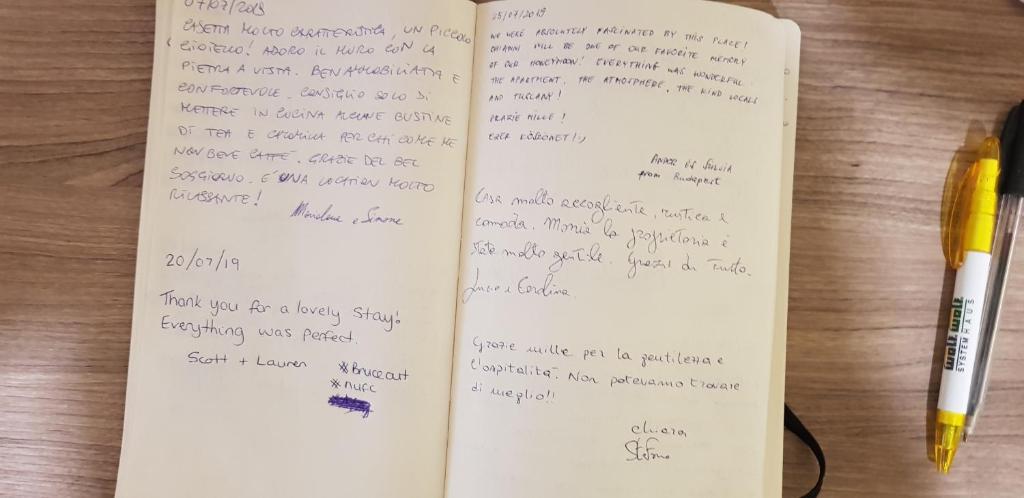 07/07/2019
CASETTA MOLTO CARATTERISTICA, UN PICCOLO
GIOIELLO! ADORO IL MURO CON LA
PIETRA A VISTA. BEN AMMOBILIATA E
CONFORTEVOLE. CONSIGLIO SOLO DI
METTERE IN CUCINA ALCUNE BUSTINE
DI TEA E CAMOMILLA PER CHI COME ME
NON BEVE CAFFÈ. GRAZIE DEL BEL
SOGGIORNO. E' UNA LOCATION MOLTO
RILASSANTE!
e Simone
20/07/19
Thank you for a lovely stay!
Everything was perfect.
Scott + Lauren
#Bruceout
#nufc
25/07/2019
WE WERE ABSOLUTELY FASCINATED BY THIS PLACE!
CHIANNI WILL BE ONE OF OUR FAVORITE MEMORY
OF OUR HONEYMOON! EVERYTHING WAS WONDERFUL.
THE APARTMENT, THE ATMOSPHERE, THE KIND LOCALS
AND TUSCANY!
GRAZIE MILLE!
EZER KÖSZÖNET! :)
ANDOR ES SZILVIA
from Budapest
Casa molto accogliente, rustica e
comoda. Monia la proprietaria è
stata molto gentile. Grazie di tutto.
e
Grazie mille per la gentilezza e
l'ospitalità. Non potevamo trovare
di meglio!!
chiara
Stefano
walt wolf
SYSTEMHAUS